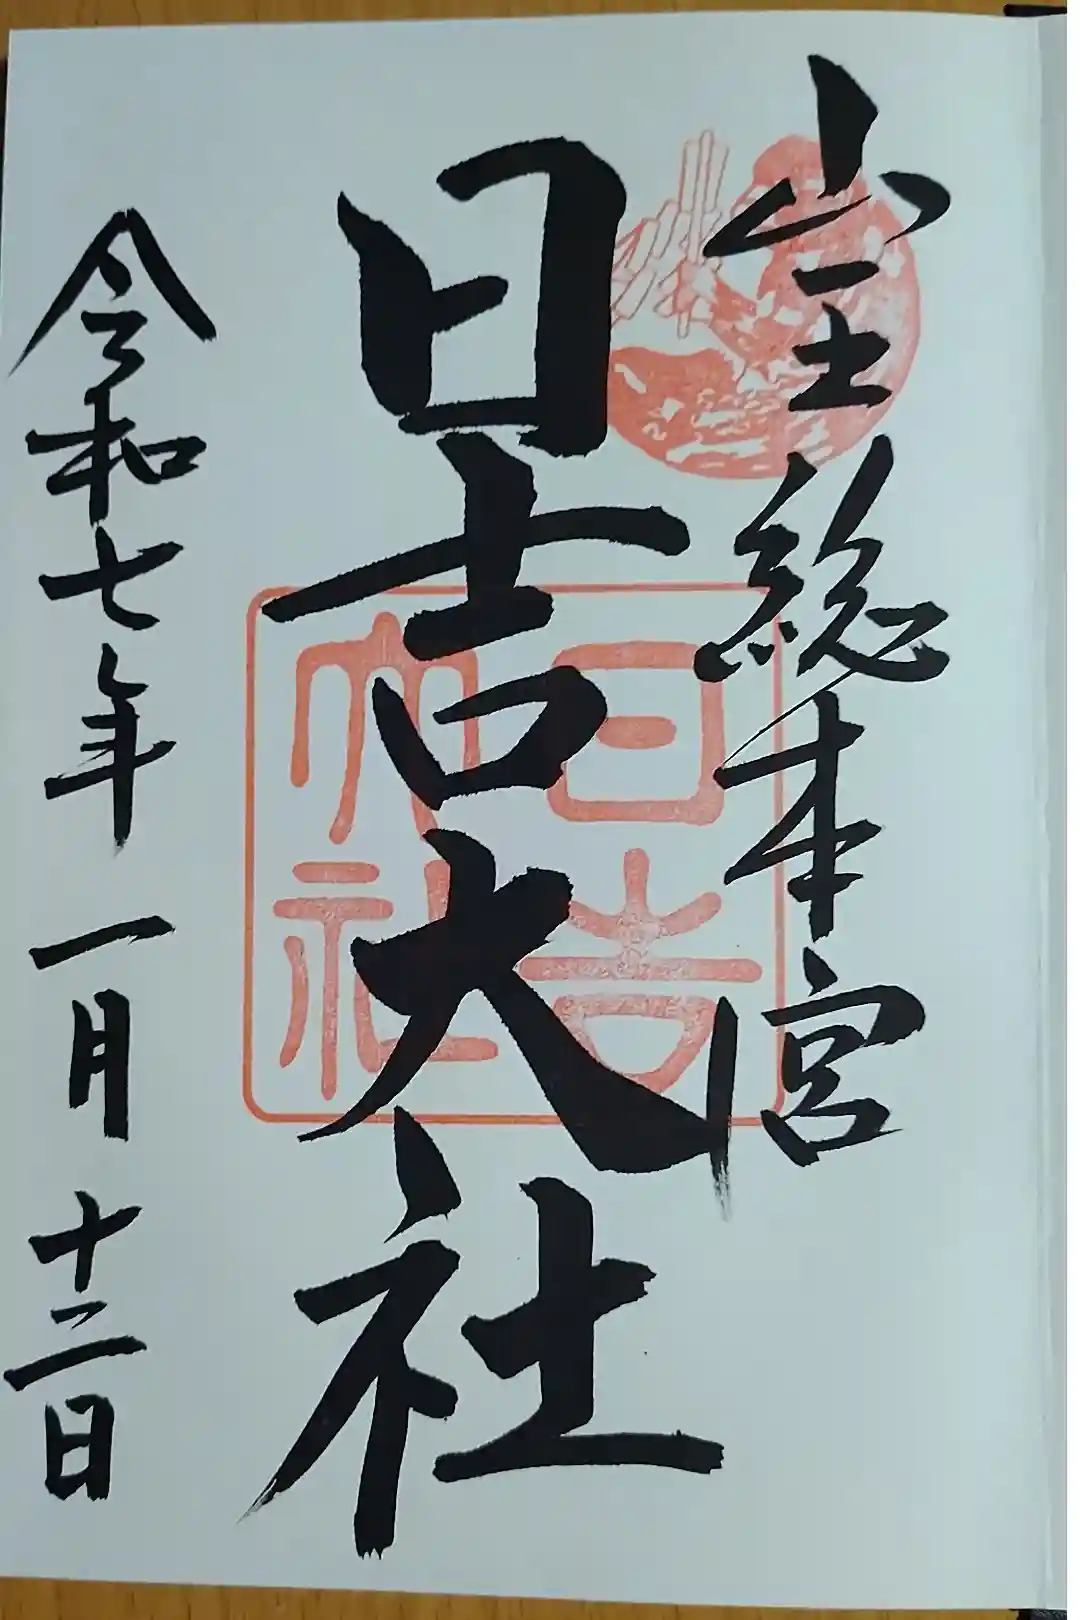 山王総本宮
日吉大社
日吉大社
令和七年 一月 十二日